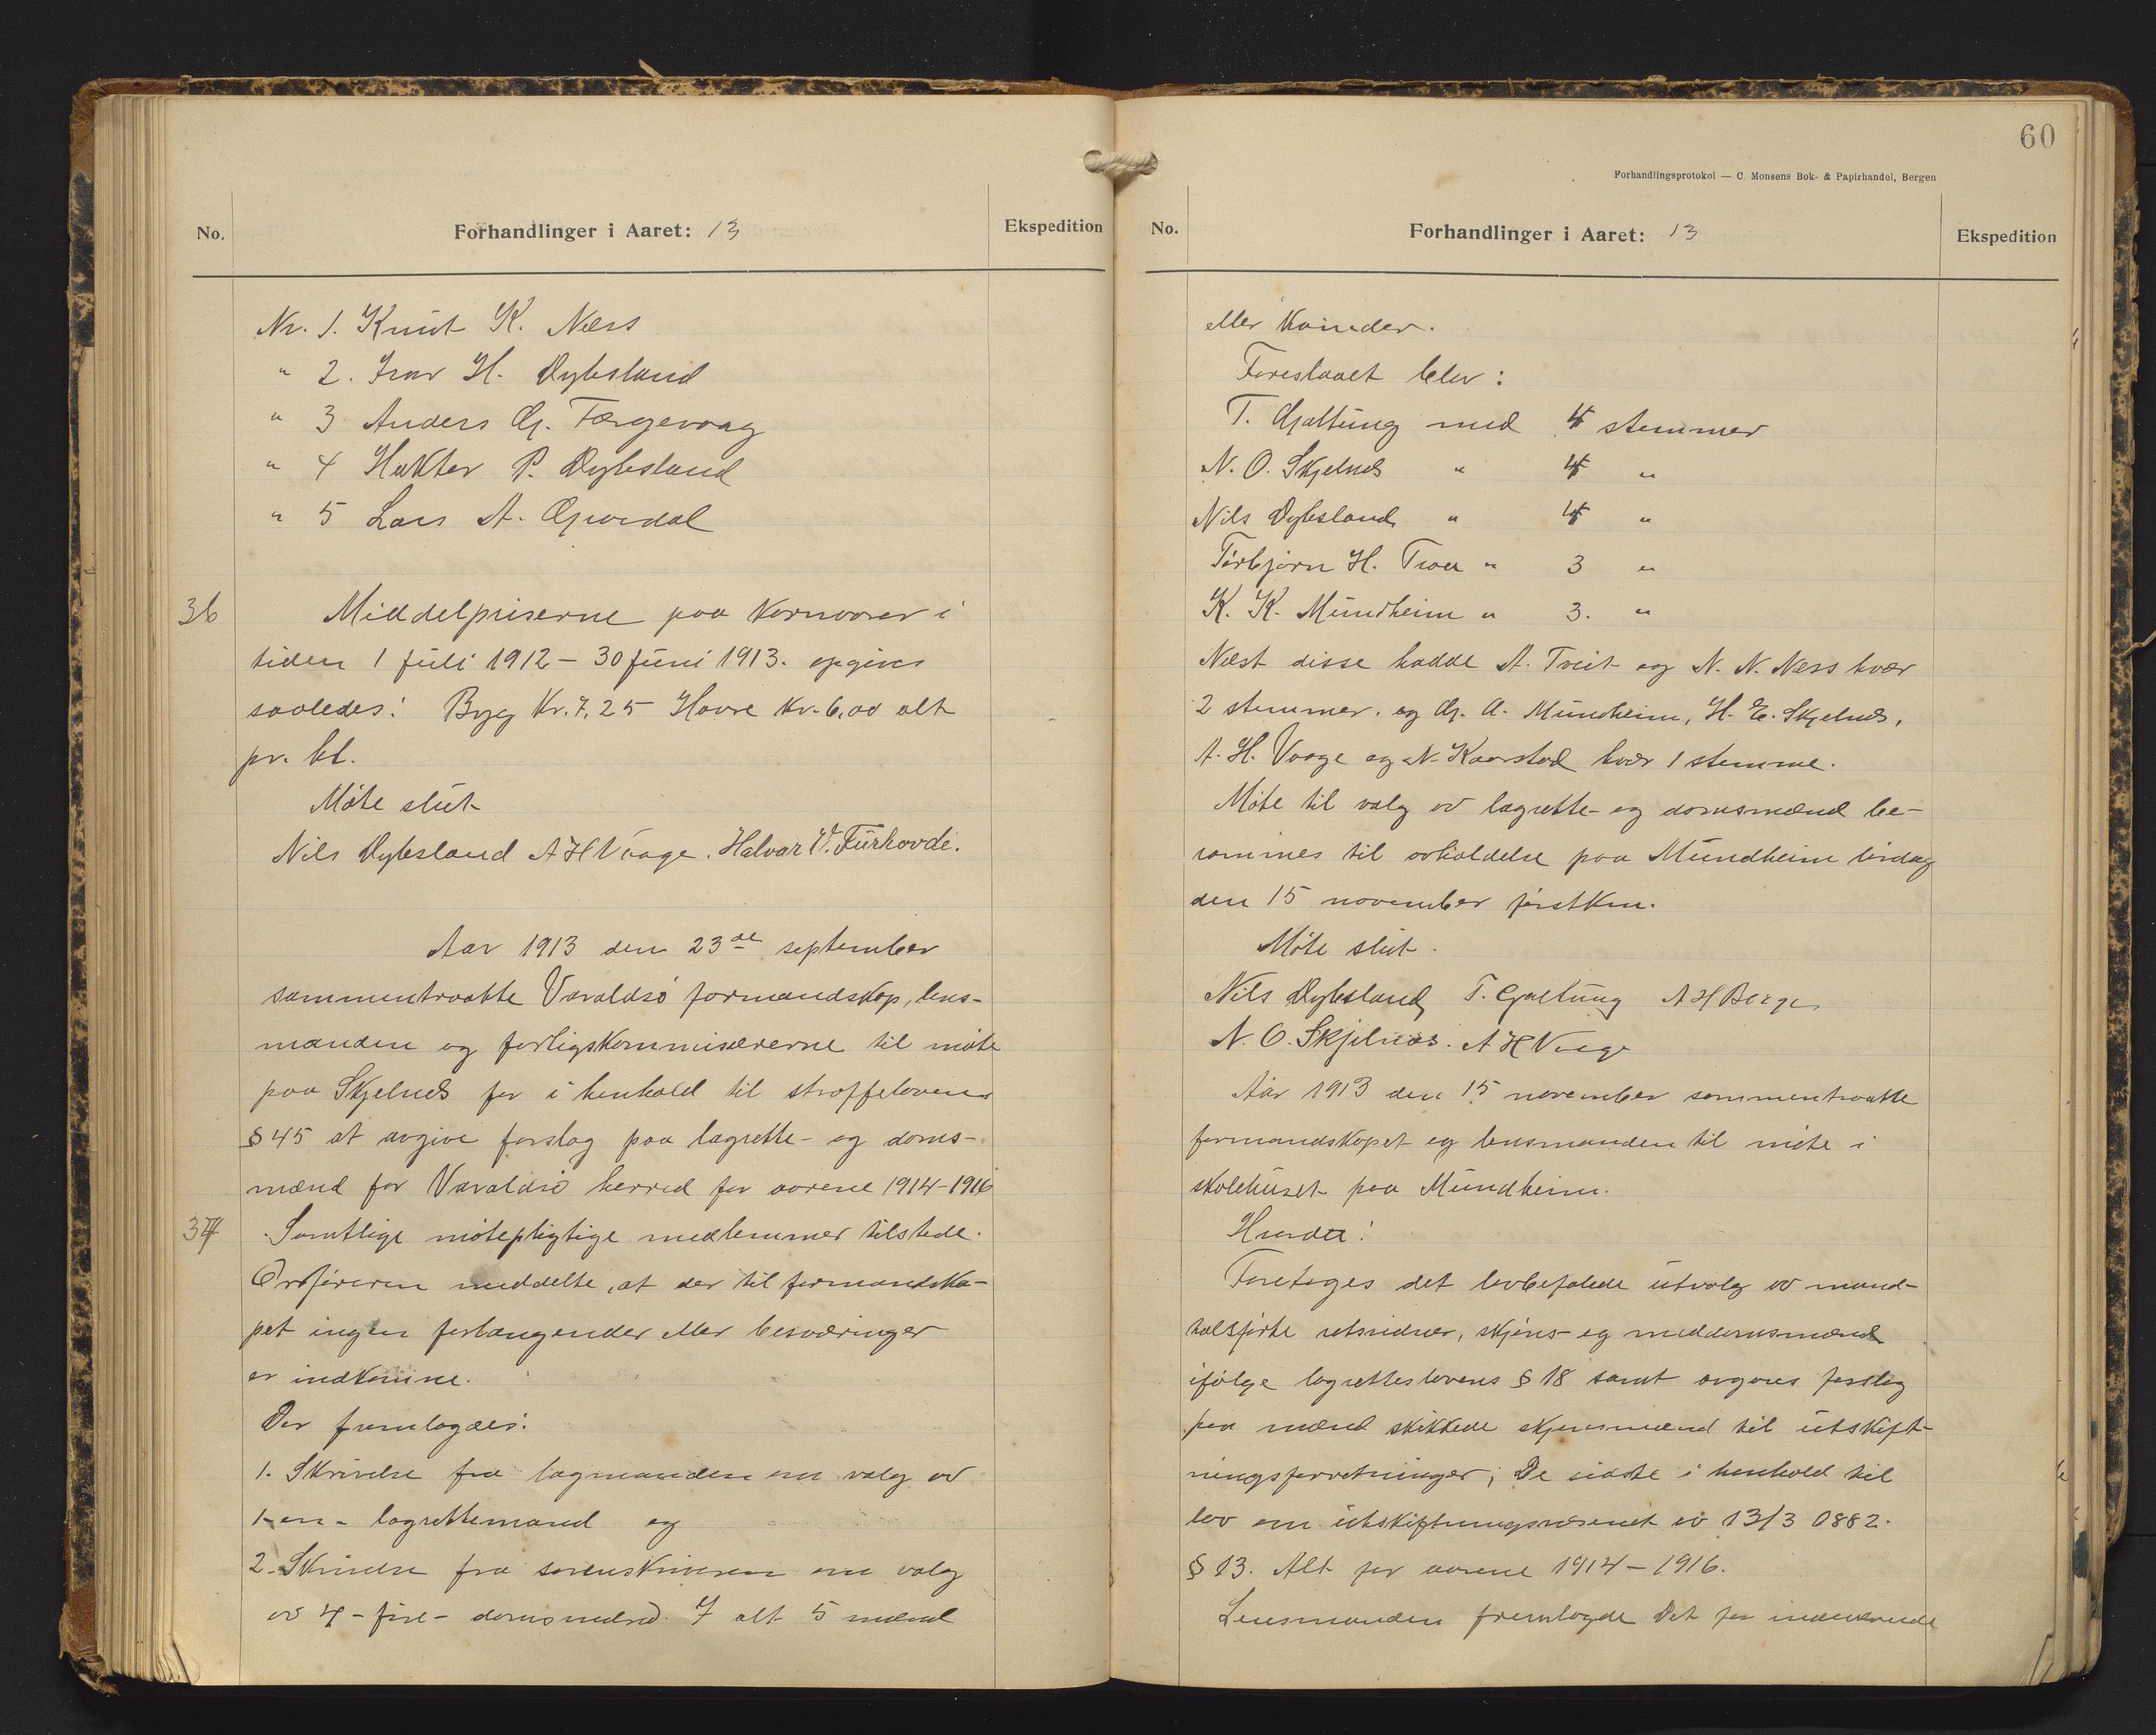 No.
Forhandlinger i Aaret: 13
Ekspedition
Nr. 1. Knut K. Næss
" 2. Ivar H. Dybsland
" 3 Anders G. Færgevaag
" 4 Hektor P. Dybsland
" 5 Lars A. Gjerdal
36
Middelpriserne paa kornvarer i
tiden 1 juli 1912 – 30 juni 1913. opgives
saaledes: Byg Kr. 7,25 Havre Kr. 6,00 alt
pr. hl.
Møte slut
Nils Dybsland A H Vaage. Halvar V. Furhovde.
Aar 1913 den 23de september
sammentraatte Varaldsø formandskap, lens-
manden og forligskommisærerne til møte
paa Skjelnes for i henhold til straffeloven
§ 45 at avgive forslag paa lagrette- og doms-
mænd for Varaldsø herred for aarene 1914-1916
37
Samtlige møtepligtige medlemmer tilstede.
Ordføreren meddelte, at der til formandska-
pet ingen forlangender eller besværinger
er indkomne.
Der fremlagdes:
1. Skrivelse fra lagmanden om valg av
1-en- lagrettemand og
2. Skrivelse fra sorenskriveren om valg
av 4-fire- domsmænd. I alt 5 mænd
60
Forhandlingsprotokol — C. Monsens Bok- & Papirhandel, Bergen
No.
Forhandlinger i Aaret: 13
Ekspedition
eller kvinder.
Foreslaaet blev:
T. Gjaltung med 4 stemmer
N. O. Skjelnes " 4 "
Nils Dybsland " 4 "
Torbjørn H. Troa " 3 "
K. K. Mundheim " 3. "
Næst disse hadde A. Tveit og N. N. Næss hvær
2 stemmer. og G. A. Mundheim, H. E. Skjelnes,
A. H. Vaage og N. Kaarstad hvær 1 stemme.
Møte til valg av lagrette- og domsmænd be-
rammes til avholdelse paa Mundheim lørdag
den 15 november førstkm.
Møte slut.
Nils Dybsland T. Gjaltung A H Berge
N. O. Skjelnes. A H Vaage
Aar 1913 den 15 november sammentraatte
formandskapet og lensmanden til møte i
skolehuset paa Mundheim.
Foretoges det lovbefalede utvalg av mand-
talsførte retsvidner, skjøns- og meddomsmænd
ifølge lagretteslovens § 18 samt avgaves forslag
paa mænd skikkede skjønsmænd til utskift-
ningsforretninger; De sidste i henhold til
lov om utskiftningsvæsenet av 13/3 0882.
§ 13. Alt for aarene 1914 – 1916.
Lensmanden fremlagde Det for indeværende